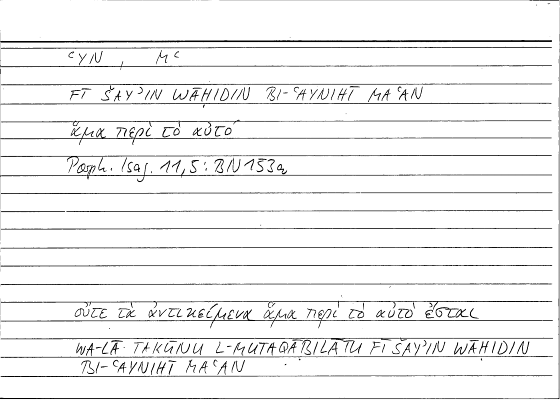 ʿYN , Mʿ
FĪ ŠAYʾIN WĀḤIDIN BI-ʿAYNIHĪ MAʿAN
ἅμα περὶ τὸ αὐτό
Porph. Isag. 11,5: BN 153a
οὔτε τὰ ἀντικείμενα ἅμα περὶ τὸ αὐτὸ ἔσται
WA-LĀ TAKŪNU L-MUTAQĀBILĀTU FĪ ŠAYʾIN WĀḤIDIN
BI-ʿAYNIHĪ MAʿAN